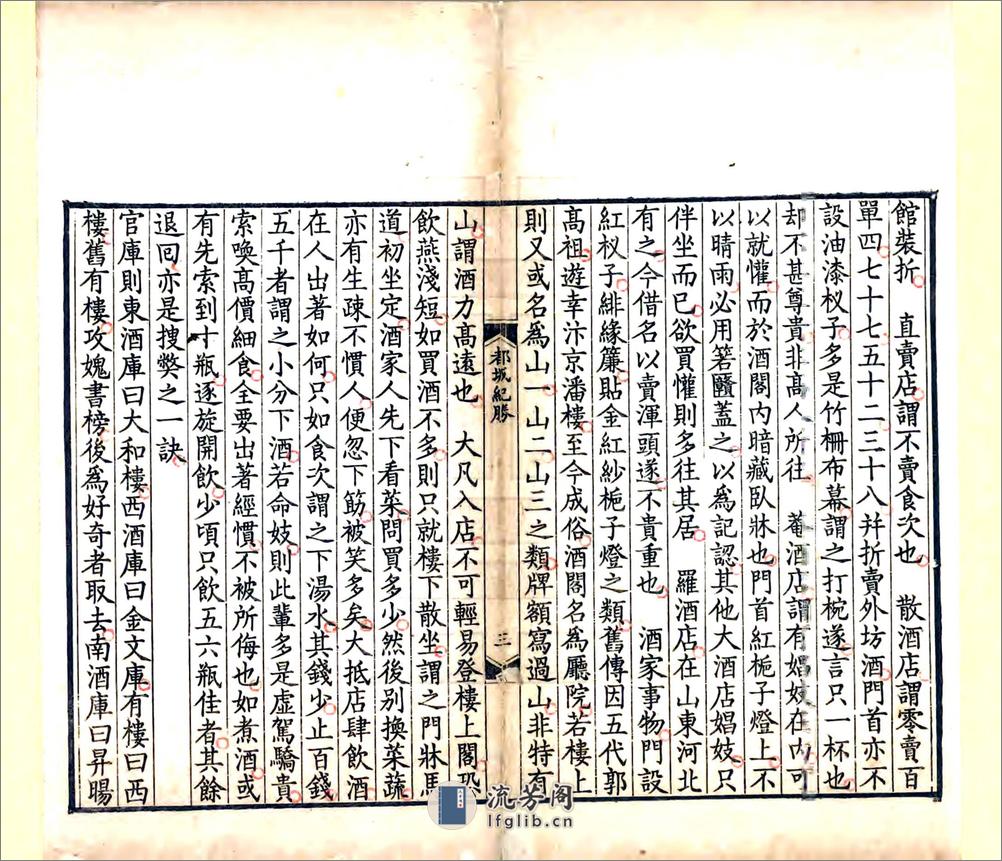 館裝折　直賣店謂不賣食次也　散酒店謂零賣百
單四七十七五十二三十八幷折賣外坊酒門首亦不
設油漆杈子多是竹柵布幕謂之打椀遂言只一杯也
却不甚尊貴非髙人所往　菴酒店謂有娼妓在內可
以就懽而於酒閣內暗藏臥牀也門首紅梔子燈上不
以晴雨必用箬𥷯蓋之以爲記認其他大酒店娼妓只
伴坐而已欲買懽則多往其居　羅酒店在山東河北
有之今借名以賣渾頭遂不貴重也　酒家事物門設
紅杈子緋緣簾貼金紅紗梔子燈之類舊傳因五代郭
髙祖遊幸汴京潘樓至今成俗酒閣名爲廳院若樓上
則又或名爲山一山二山三之類牌額寫過山非特有
都城紀勝
三
山謂酒力髙遠也　大凡入店不可輕易登樓上閣恐
飲燕淺短如買酒不多則只就樓下散坐謂之門牀馬
道初坐定酒家人先下看菜問買多少然後别換菜蔬
亦有生疎不慣人便忽下筯被笑多矣大抵店肆飲酒
在人出著如何只如食次謂之下湯水其錢少止百錢
五千者謂之小分下酒若命妓則此輩多是虛駕驕貴
索喚髙價細食全要出著經慣不被所侮也如煮酒或
有先索到十瓶逐旋開飲少頃只飲五六瓶佳者其餘
退回亦是搜獘之一訣
官庫則東酒庫曰大和樓西酒庫曰金文庫有樓曰西
樓舊有樓攻媿書榜後爲好奇者取去南酒庫曰昇暘
流芳阁
lfglib.cn